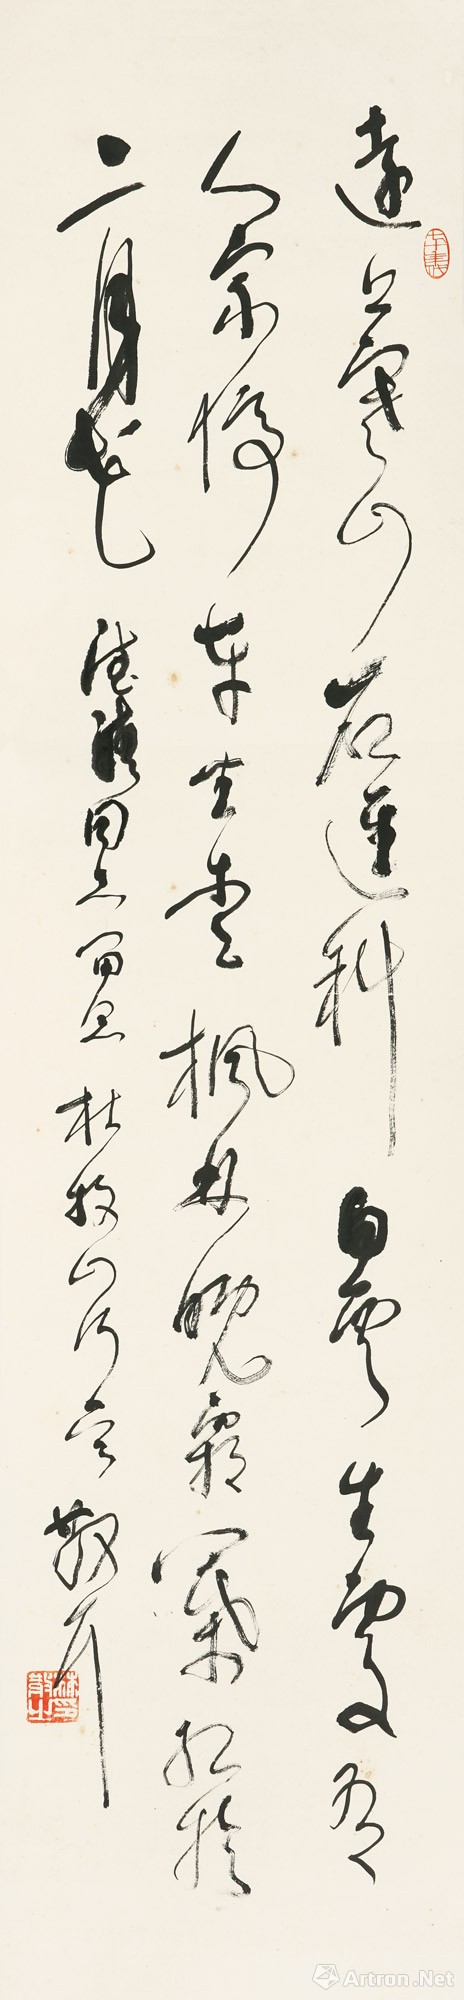 遠上寒山石逕斜白雲生處有
人家停車坐愛楓林晚霜葉紅於
二月花
同志留念杜牧山行散耳
林散之印
Artron.Net